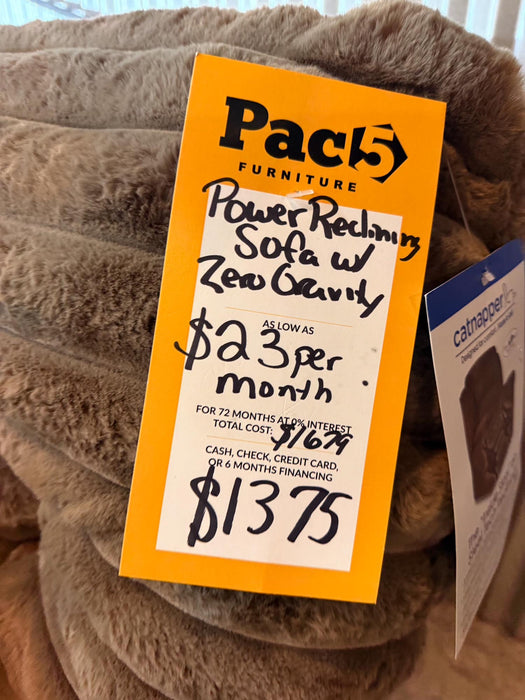 Pac5
FURNITURE
Power Reclining
Sofa w/
Zero Gravity
AS LOW AS
$23 per
month
FOR 72 MONTHS AT 0% INTEREST
TOTAL COST: $1679
CASH, CHECK, CREDIT CARD,
OR 6 MONTHS FINANCING
$1375
catnapper